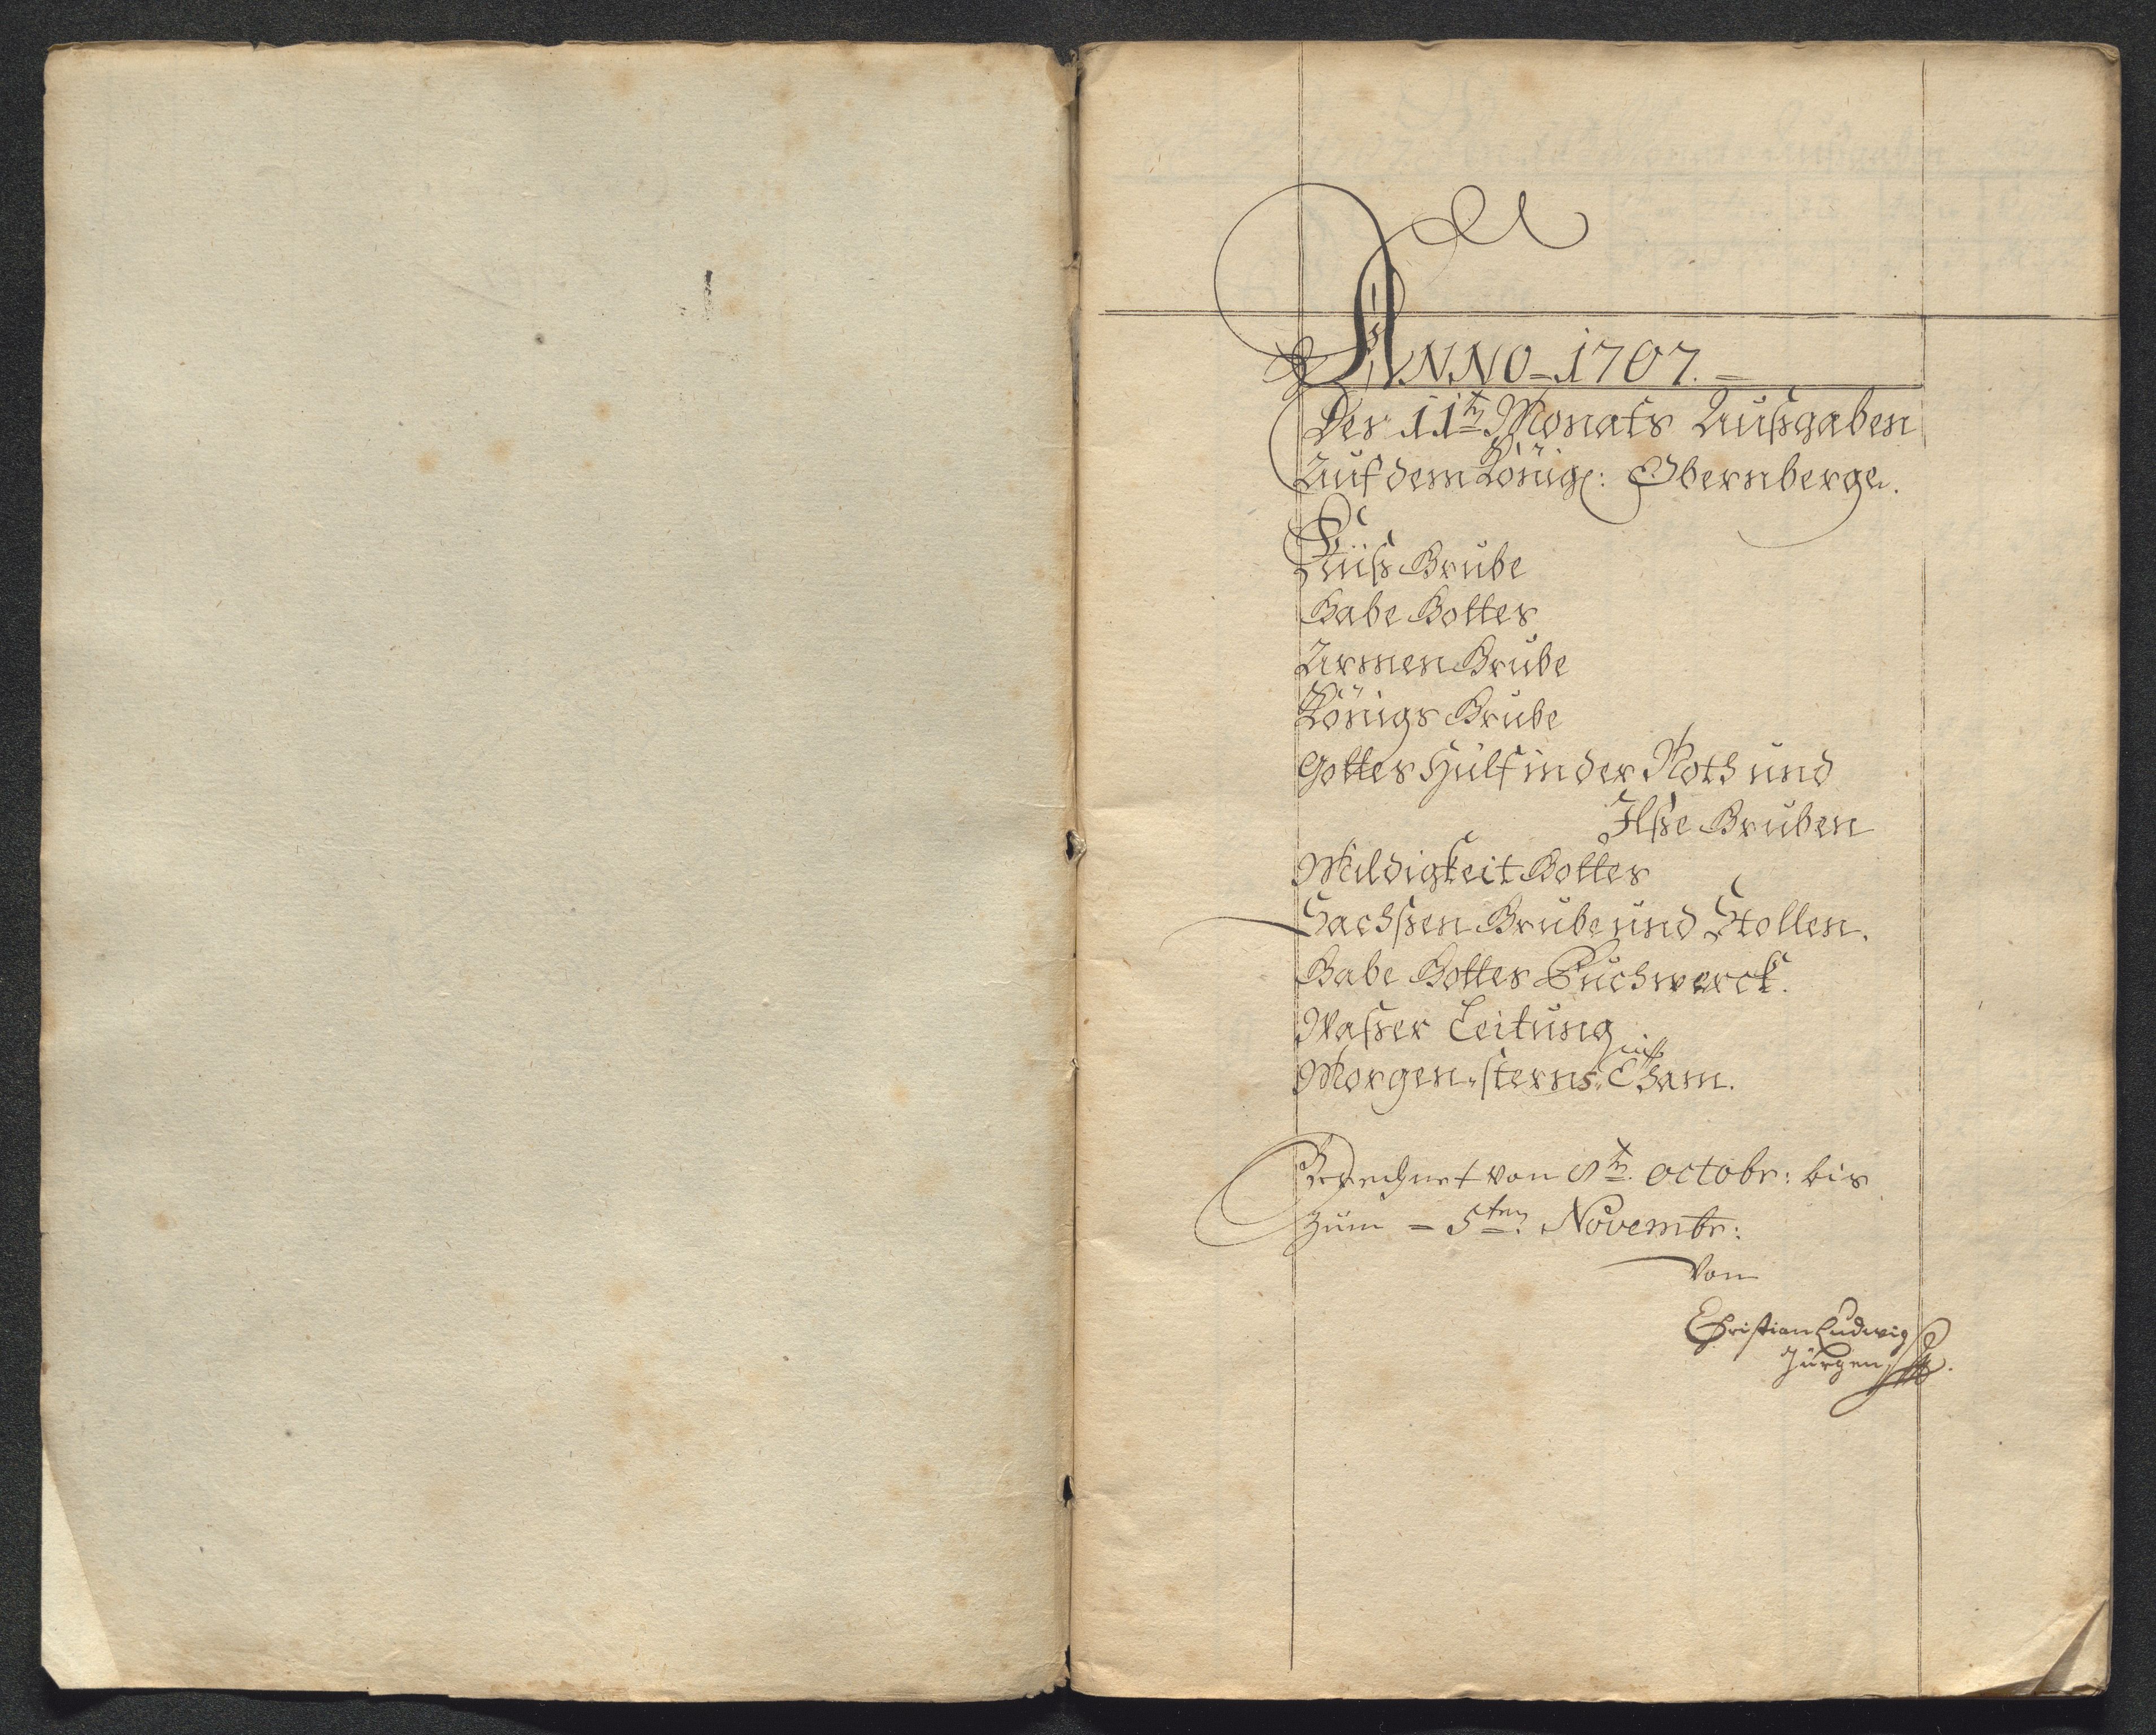 ANNO 1707.
Des 11ten Monats Außgaben
Auf dem Königl: Obernberge.
Jüls Grube
Gabe Gottes
Armen Grube
Königs Grube
Gottes Hülf in der Noth und
Ilße Gruben
Mildigkeit Gottes
Sachßen Grube und Stollen.
Gabe Gottes Puchwerck.
Waßer Leitung
Morgen-sterns
Berechnet von 8ten octobr: bis
zum - 5ten Novembr:
Von
Christian Ludwig
Jürgens